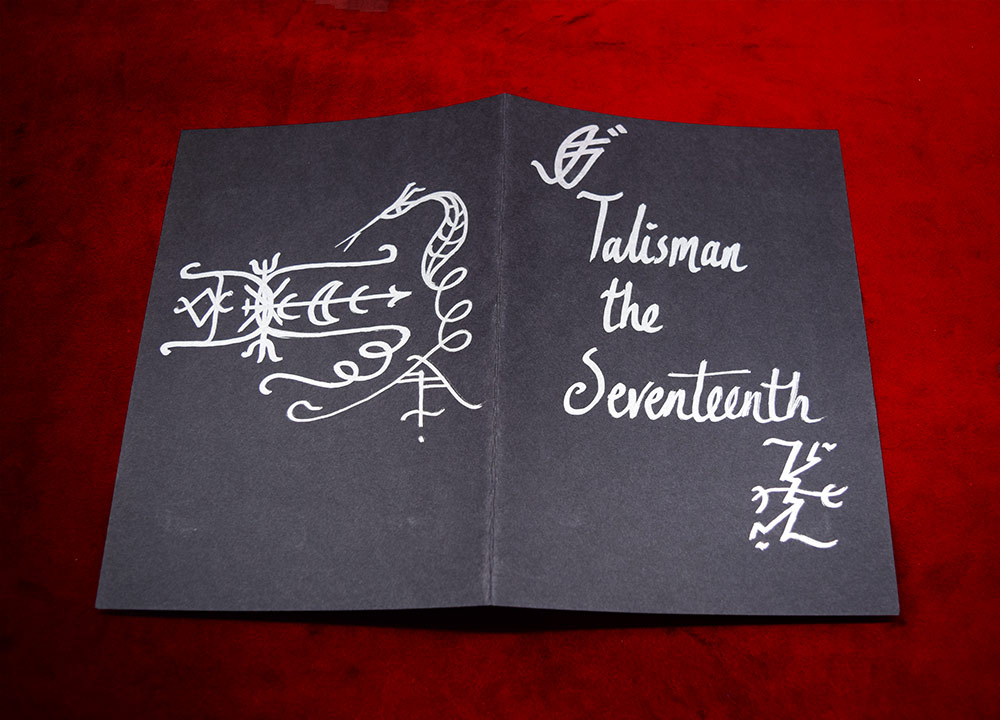 Talisman
the
Seventeenth